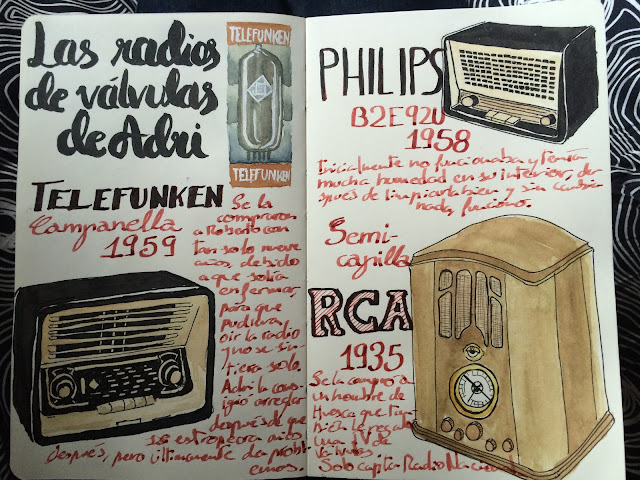 Las radios
de válvulas
de Adri
TELEFUNKEN
TELEFUNKEN
TELEFUNKEN
Campanella
1959
Se la
compraron
a Roberto con
tan solo nueve
años, debido
a que solía
enfermar,
para que
pudiera
oír la radio
y no se sin
tiera solo.
Adri la consi
guió arreglar
después de que
se estropeara años
después, pero últimamente da probl
emas.
PHILIPS
B2E92U
1958
Inicialmente no funcionaba y tenía
mucha humedad en su interior, des
pués de limpiarla bien y sin cambiar
nada, funcionó.
Semi-
capilla
RCA
1935
Se la compró a
un hombre de
Huesca que tam
bién le regaló
una TV de
válvulas
Solo capta Radio Nacional